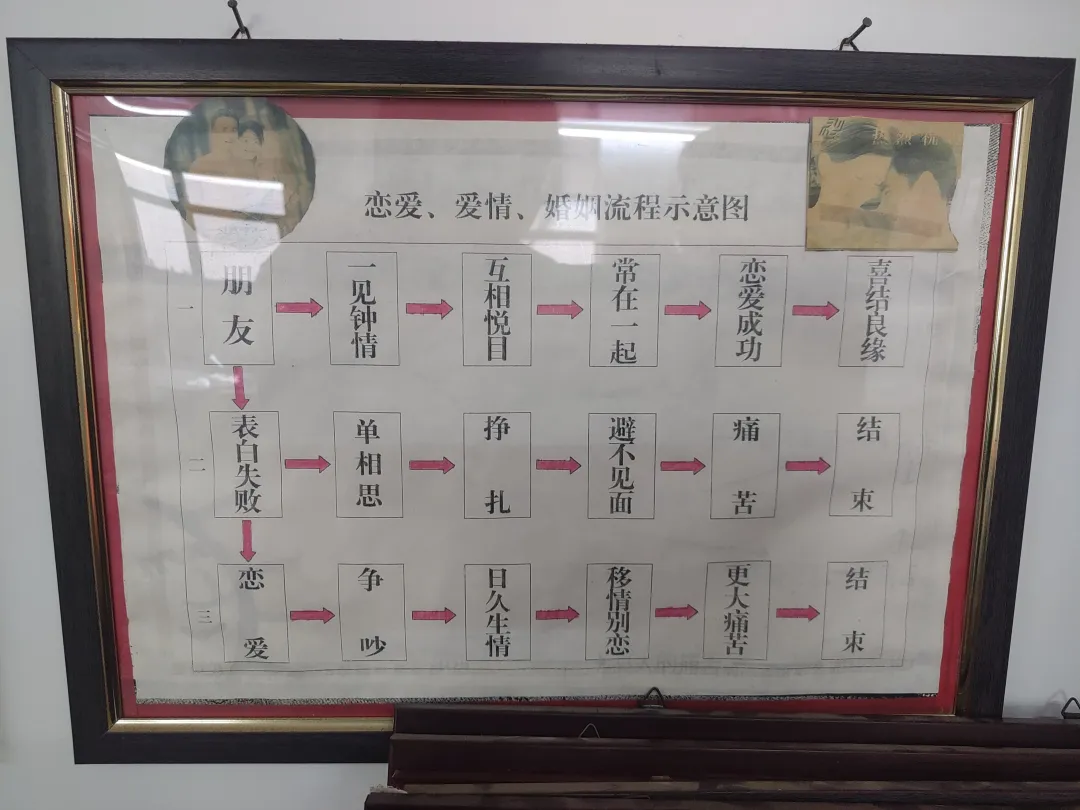 恋爱、爱情、婚姻流程示意图
一 朋友 一见钟情 互相悦目 常在一起 恋爱成功 喜结良缘
二 表白失败 单相思 挣扎 避不见面 痛苦 结束
三 恋爱 争吵 日久生情 移情别恋 更大痛苦 结束